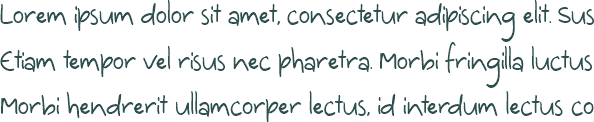 Lorem ipsum dolor sit amet, consectetur adipiscing elit. Sus
Etiam tempor vel risus nec pharetra. Morbi fringilla luctus
Morbi hendrerit ullamcorper lectus, id interdum lectus co